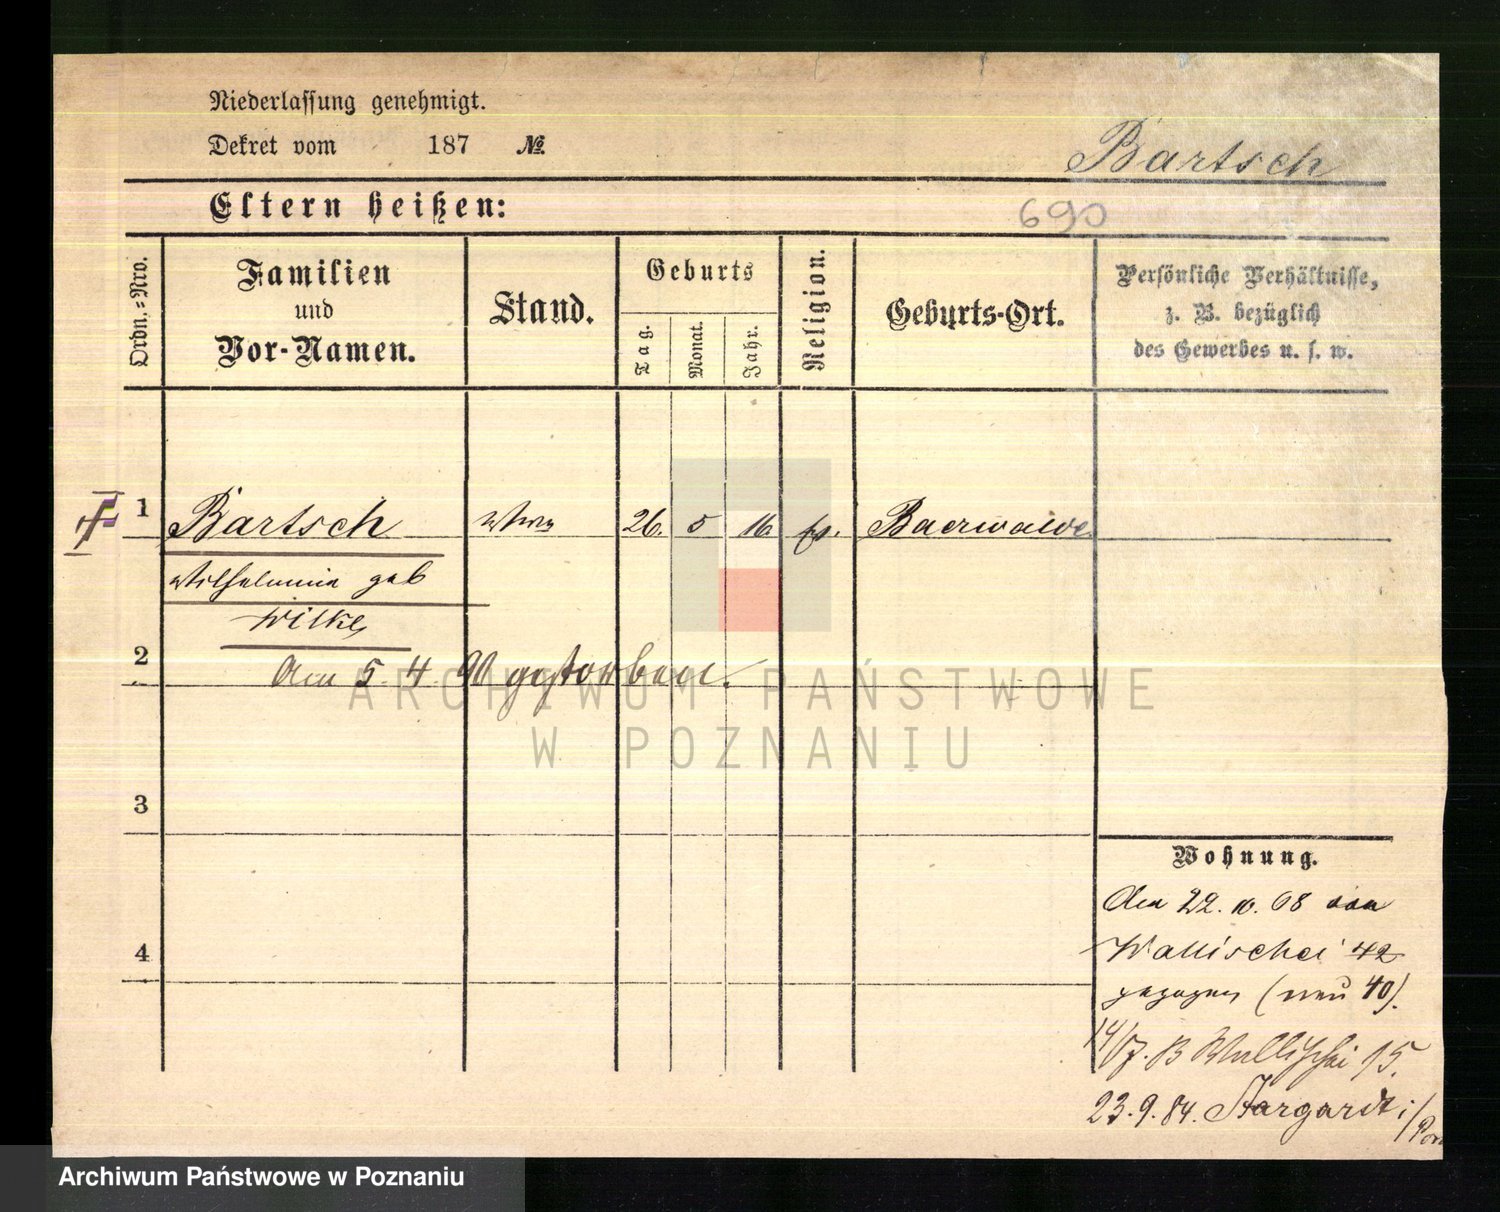 Niederlassung genehmigt.
Dekret vom 187 №
Bartsch
Eltern heißen:
690
Ordn.-Nro.
Familien
und
Vor-Namen.
Stand.
Geburts
Tag.
Monat.
Jahr.
Religion.
Geburts-Ort.
Persönliche Verhältnisse,
z. B. bezüglich
des Gewerbes u. s. w.
1 Bartsch 26. 5 16. Baerwalde
Wilhelmine geb
Wilke
2 Am 5. 4. 90 gestorben.
ARCHIWUM PAŃSTWOWE
W POZNANIU
3
4
Wohnung.
Am 22. 10. 68 von
Wallischei 42
gezogen (neu 40).
14/7. B Wallischei 15.
23. 9. 84. Stargardt i/Pom
Archiwum Państwowe w Poznaniu